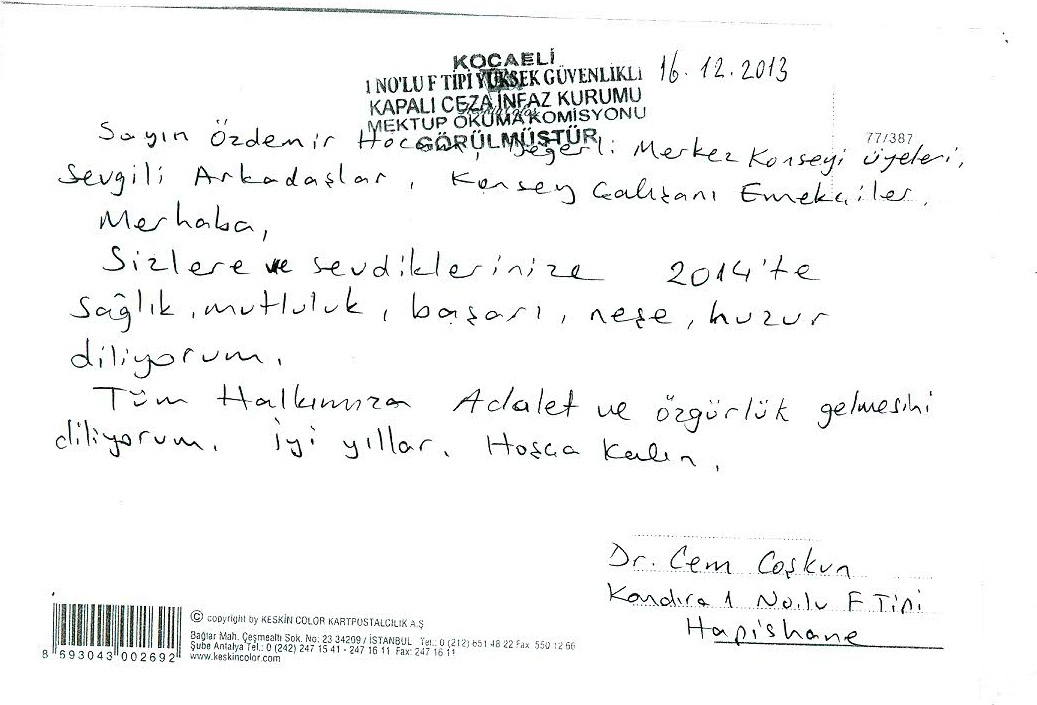 KOCAELİ
1 NO'LU F TİPİ YÜKSEK GÜVENLİKLİ
KAPALI CEZA İNFAZ KURUMU
MEKTUP OKUMA KOMİSYONU
GÖRÜLMÜŞTÜR
16.12.2013
77/387
Sayın Özdemir Hocam, Değerli Merkez Konseyi Üyeleri,
Sevgili Arkadaşlar, Konsey Çalışanı Emekçiler,
Merhaba,
Sizlere ve sevdiklerinize 2014'te
sağlık, mutluluk, başarı, neşe, huzur
diliyorum.
Tüm Halkımıza Adalet ve özgürlük gelmesini
diliyorum. İyi yıllar. Hoşça Kalın.
Dr. Cem Coşkun
Kandıra 1 No.lu F Tipi
Hapishane
8 693043 002692
© copyright by KESKİN COLOR KARTPOSTALCILIK A.Ş
Bağlar Mah. Çeşmealtı Sok. No: 23 34209 / İSTANBUL Tel.: 0 (212) 651 48 22 Fax 550 12 66
Şube Antalya Tel.: 0 (242) 247 15 41 - 247 16 11 Fax: 247 16 11
www.keskincolor.com